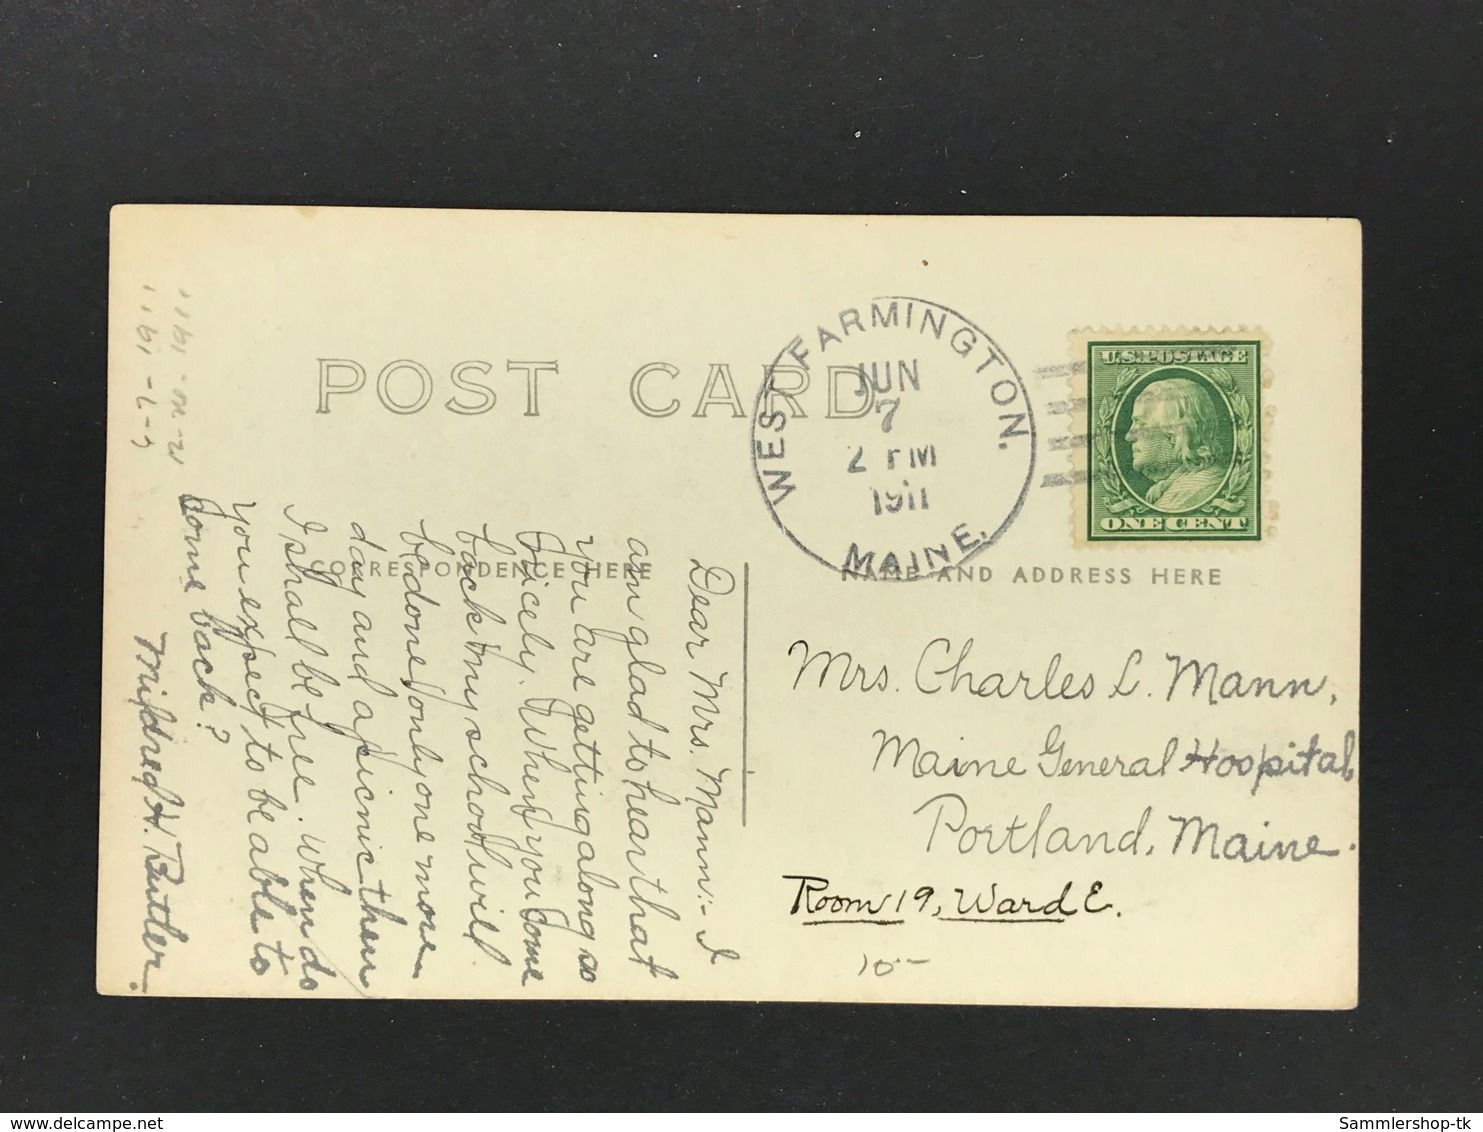 POST CARD
WEST FARMINGTON,
JUN
7
2 PM
1911
MAINE.
U.S. POSTAGE
ONE CENT
CORRESPONDENCE HERE
NAME AND ADDRESS HERE
Dear Mrs. Mann:- I
am glad to hear that
you are getting along so
nicely. When you come
back my school will
be done, only one more
day and a picnic then
I shall be free. When do
you expect to be able to
come back?
Mildred H. Butler.
Mrs. Charles L. Mann,
Maine General Hospital
Portland, Maine.
Room 19, Ward E.
10--
1911
6-7-1911
Sammlershop-tk